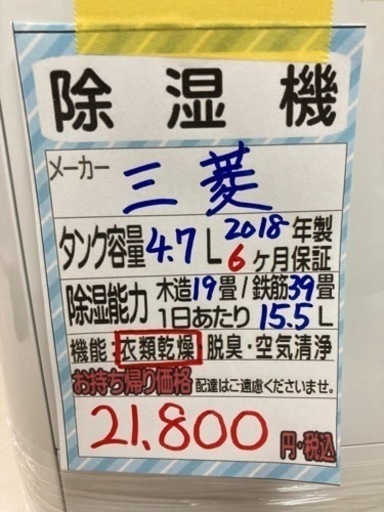 除湿機
メーカー 三菱
タンク容量 4.7L 2018年製
6ヶ月保証
除湿能力 木造19畳/鉄筋39畳
1日あたり 15.5L
機能:衣類乾燥 脱臭・空気清浄
お持ち帰り価格 配達はご遠慮くださいませ。
21,800 円・税込